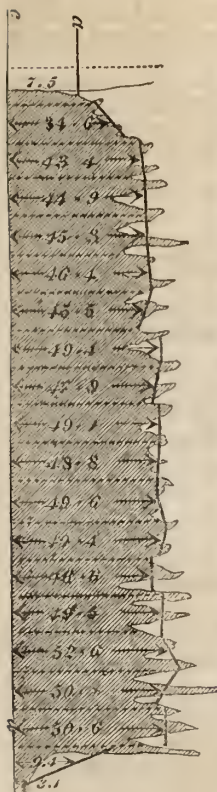 p p
7.5
34·6
43·4
44·9
45·3
46·4
45·5
49·4
47·9
49·1
48·8
49·6
49·4
48·5
52·6
50·6
9.4
3.1